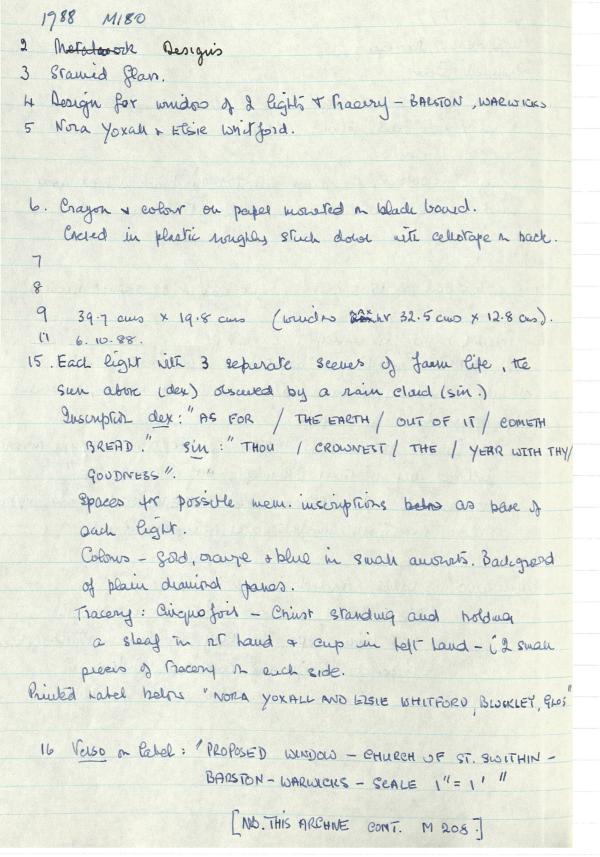 1988 M180
2 Metalwork Designs
3 Stained Glass.
4 Design for window of 2 lights & Tracery - BARSTON, WARWICKS
5 Nora Yoxall & Elsie Whitford.
6. Crayon & colour on paper mounted on black board.
Cased in plastic roughly stuck down with cellotape on back.
7
8
9 39.7 cms x 19.8 cms (window 32.5 cms x 12.8 cms).
11 6.10.88.
15. Each light with 3 separate scenes of farm life, the
sun above (dex) obscured by a rain cloud (sin.)
Inscription dex: "AS FOR / THE EARTH / OUT OF IT / COMETH
BREAD." sin: "THOU / CROWNEST / THE / YEAR WITH THY/
GOODNESS".
Spaces for possible mem. inscriptions below as base of
each light.
Colours - gold, orange & blue in small amounts. Background
of plain diamond panes.
Tracery: Cinquefoil - Christ standing and holding
a sheaf in rt hand & cup in left hand - 2 small
pieces of tracery on each side.
Printed label below "NORA YOXALL AND ELSIE WHITFORD, BLOCKLEY, GLOS"
16 Verso on label: "PROPOSED WINDOW - CHURCH OF ST. SWITHIN -
BARSTON - WARWICKS - SCALE 1" = 1' "
[NB. THIS ARCHIVE CONT. M 208.]